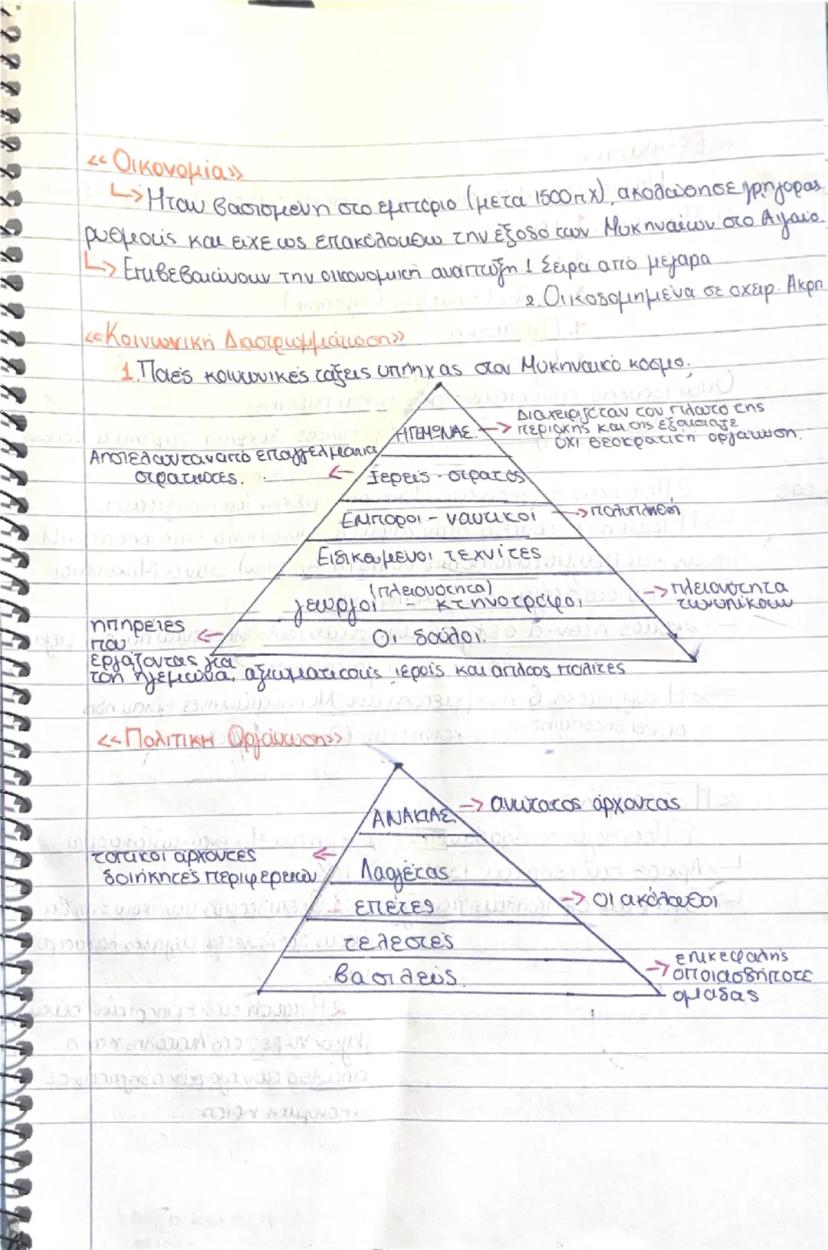 <<Οικονομία>>
↳ Ήταν βασισμένη στο εμπόριο (μετά 1500π.χ), ακολούθησε γρήγορας
ρυθμούς και είχε ως επακόλουθω την έξοδο των Μυκηναίων στο Αιγαίο.
↳ Επιβεβαιώνουν την οικονομική αναπτυξη 1. Σειρά από μέγαρα
2. Οικοδομημένα σε οχειρ. Ακρπ.
<<Κοινωνική Διαστρωμμάτωση>>
1. Ποιές κοινωνικές τάξεις υπήρχας στον Μυκηναικό κόσμο;
ΗΓΕΜΩΝΑΣ → Διαχειρίζεταν τον πλούτο της
περιοχής και της εξουσίας
όχι θεοκρατική οργάνωση.
Αποτελούνταν από επαγγελματία
στρατιώτες. ← Ιερείς - στρατός
Εμποροι - ναυτικοί → πολυπληθή
Ειδικωμενοι τεχνίτες
(πλειονότητα)
γεωργοί κτηνοτρόφοι → πλειονότητα
των υπηκόων
Οι δούλοι.
υπηρείτες
που ←
εργάζονταν για
τον ηγεμώνα, αξιωματικούς ιερείς και απλούς πολίτες
<<Πολιτικη Οργάνωση>>
ΑΝΑΚΤΑΣ → ανώτατος άρχοντας
τοπικοί άρχοντες ←
διοικητές περιφερειών
Λαφέτας
επέτες → Οι ακόλουθοι
τελεστές
βασιλεύς → επικεφαλής
οποιασδήποτε
ομάδας